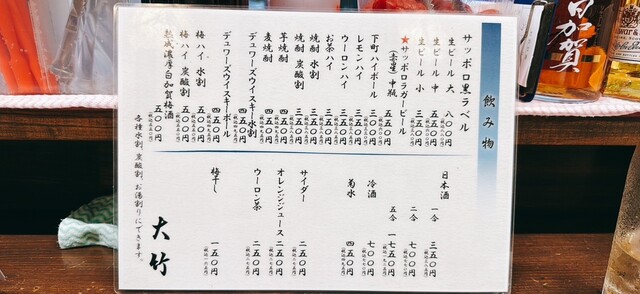 飲み物
サッポロ黒ラベル
生ビール 大 八〇〇円
生ビール 中 五五〇円
生ビール 小 三五〇円
★サッポロラガービール
(赤星)中瓶 五五〇円
下町ハイボール 三〇〇円
レモンハイ 三五〇円
ウーロンハイ 三五〇円
お茶ハイ 三五〇円
焼酎 水割 三五〇円
焼酎 炭酸割 三五〇円
芋焼酎 四五〇円
麦焼酎 四五〇円
デュワーズウイスキー水割 四五〇円
デュワーズウイスキーボール 四五〇円
梅ハイ 水割 五〇〇円
梅ハイ 炭酸割 五〇〇円
熟成濃厚白加賀梅酒 五〇〇円
日本酒 一合 三五〇円
二合 七〇〇円
五合 一七五〇円
冷酒 七〇〇円
菊水 四五〇円
サイダー 二五〇円
オレンジジュース 二五〇円
ウーロン茶 二五〇円
梅干し 一五〇円
各種水割、炭酸割、お湯割りにできます。
大竹
白加賀